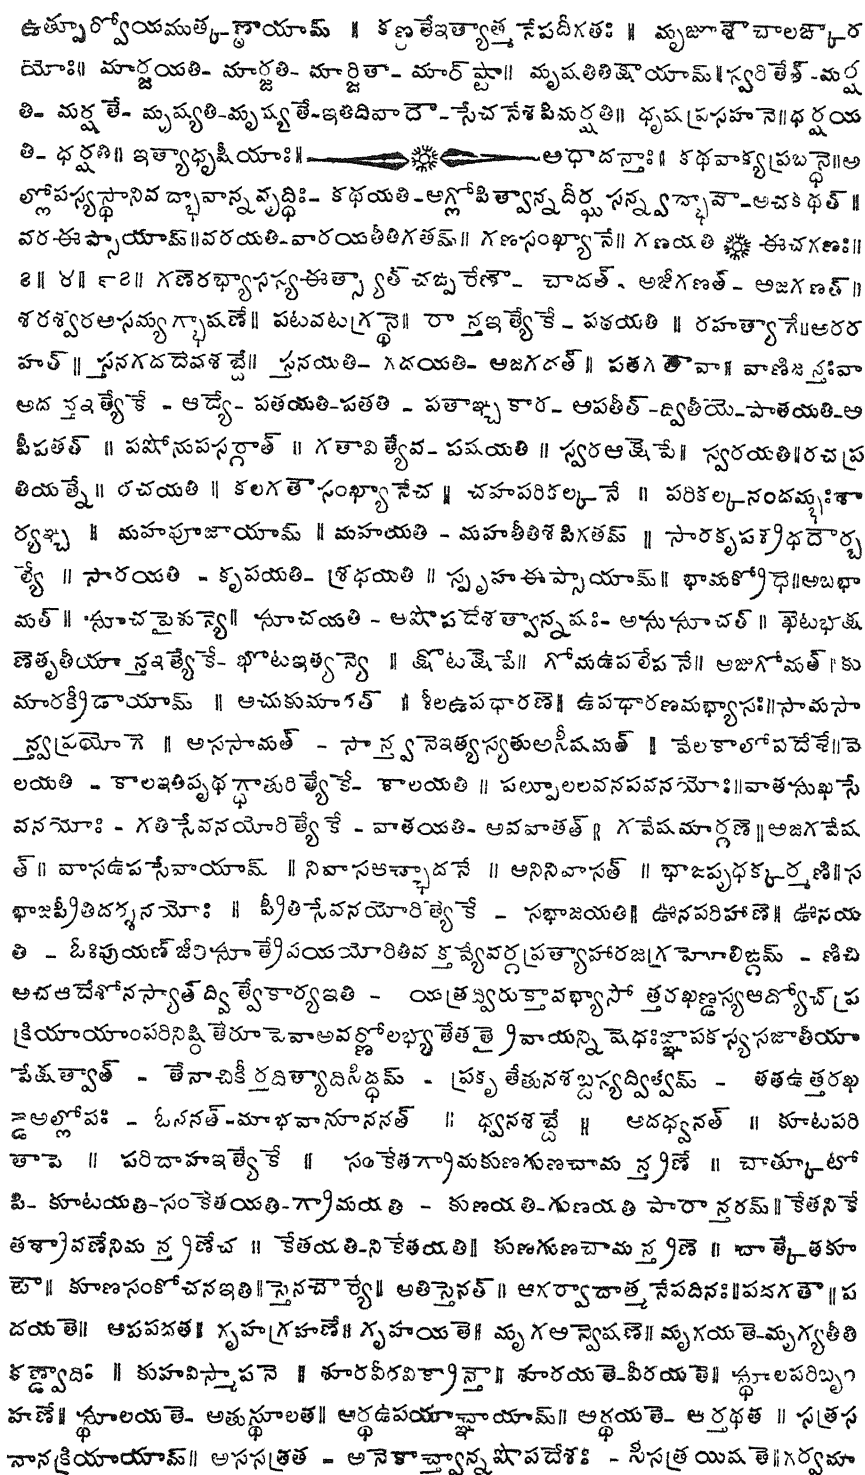 ఉత్పూర్వోయముత్కణ్ఠాయామ్ ॥ కణ్ఠతేఇత్యాత్మనేపదీగతః ॥ మృజూశౌచాలఙ్కార
యోః॥ మార్జయతి- మార్జతి- మార్జితా- మార్ష్టా॥ మృషతితిక్షాయామ్॥స్వరితేత్-మర్ష
తి- మర్షతే- మృష్యతి-మృష్యతే-ఇతిదివాదౌ-సేచనేశపిమర్షతి॥ ధృషప్రసహనె॥ధర్షయ
తి- ధర్షతి॥ ఇత్యాధృషీయాః॥ అథాదన్తాః॥ కథవాక్యప్రబన్ధె॥అ
ల్లోపస్యస్థానివద్భావాన్నవృద్ధిః- కథయతి-అగ్లోపిత్వాన్నదీర్ఘసన్వద్భావౌ-అచకథత్॥
వరఈప్సాయామ్॥వరయతి-వారయతీతిగతమ్॥ గణసంఖ్యానే॥ గణయతి ఈచగణః॥
౭॥ ౪॥ ౯౭॥ గణేరభ్యాసస్యఈత్స్యాత్ చఙ్పరేణౌ- చాదత్- అజీగణత్- అజగణత్॥
శఠశ్వఠఅసమ్యగ్భాషణే॥ పటవటగ్రన్థె॥ రాన్తఇత్యేకే- పఠయతి ॥ రహత్యాగే॥అరర
హత్ ॥ స్తనగదదేవశబ్దే॥ స్తనయతి- గదయతి- అజగదత్॥ పతగతౌవా॥ వాణిజన్తఃవా
అదన్తఇత్యేకే - ఆద్యే- పతయతి-పతతి - పతాఞ్చకార- అపతీత్-ద్వితీయె-పాతయతి-అ
పీపతత్ ॥ పషోనుపసర్గాత్ ॥ గతావిత్యేవ- పషయతి ॥ స్వరఆక్షెపే॥ స్వరయతి॥రచప్ర
తియత్నే॥ రచయతి ॥ కలగతౌసంఖ్యానేచ ॥ చహపరికల్కనే ॥ పరికల్కనందమ్భఃశా
ఠ్యఞ్చ ॥ మహపూజాయామ్ ॥ మహయతి - మహతీతిశపిగతమ్ ॥ సారకృపశ్రథదౌర్బ
ల్యే ॥ సారయతి - కృపయతి- శ్రథయతి ॥ స్పృహఈప్సాయామ్॥ భామక్రోధె॥అబభా
మత్॥ సూచపైశున్యె॥ సూచయతి- అషోపదేశత్వాన్నషః- అసుసూచత్॥ ఖేటభక్ష
ణెతృతీయాన్తఇత్యేకే- ఖోటఇత్యన్యె ॥ క్షోటక్షెపే॥ గోమఉపలేపనే॥ అజుగోమత్॥కు
మారక్రీడాయామ్ ॥ అచుకుమారత్ ॥ శీలఉపధారణె॥ ఉపధారణమభ్యాసః॥సామసా
న్త్వప్రయోగె ॥ అససామత్ - సాన్త్వనెఇత్యస్యతుఅసీషమత్ ॥ వేలకాలోపదేశే॥వె
లయతి - కాలఇతిపృథగ్ధాతురిత్యేకే- కాలయతి ॥ పల్పూలలవనపవనయోః॥వాతసుఖసే
వనయోః - గతిసేవనయోరిత్యేకే - వాతయతి- అవవాతత్॥ గవేషమార్గణె॥అజగవేష
త్॥ వాసఉపసేవాయామ్ ॥నివాసఆచ్ఛాదనే ॥ అనినివాసత్ ॥ భాజపృథక్కర్మణి॥స
భాజప్రీతిదర్శనయోః ॥ ప్రీతిసేవనయోరిత్యెకే - సభాజయతి॥ ఊనపరిహాణె॥ ఊనయ
తి - ఓఃపుయణ్జీతిసూత్రేపయయోరితివక్తవ్యేవర్గప్రత్యాహారజగ్రహోలిఙ్గమ్ - ణిచి
అచఆదేశోనస్యాత్ద్విత్వేకార్యఇతి - యత్రద్విరుక్తావభ్యాసోత్తరఖణ్డస్యఆద్యోచ్ప్ర
క్రియాయాంపరినిష్ఠితేరూపెవాఅవర్ణోలభ్యతేతత్రైవాయన్నిషెధఃజ్ఞాపకస్యసజాతీయా
పేక్షత్వాత్ - తేనాచికీర్తదిత్యాదిసిద్ధమ్ - ప్రకృతేతునశబ్దస్యద్విత్వమ్ - తతఉత్తరఖ
ణ్డెఅల్లోపః - ఓననత్-మాభవానూననత్ ॥ ధ్వనశబ్దే ॥ అదధ్వనత్ ॥ కూటపరి
తాపె ॥ పరిదాహఇత్యేకే ॥ సంకేతగ్రామకుణగుణచామన్త్రణే ॥ చాత్కూటో
పి- కూటయతి-సంకేతయతి-గ్రామయతి - కుణయతి-గుణయతి పాఠాన్తరమ్॥కేతనికే
తశ్రావణేనిమన్త్రణేచ ॥ కేతయతి-నికేతయతి॥ కుణగుణచామన్త్రణె ॥ చాత్కేతకూ
టౌ॥ కూణసంకోచనఇతి॥స్తెనచౌర్యే॥ అతిస్తెనత్॥ ఆగర్వాదాత్మనేపదినః॥పదగతౌ॥ప
దయతె॥ అపపదత॥ గృహగ్రహణే॥గృహయతె॥ మృగఅన్వెషణె॥మృగయతె-మృగ్యతీతి
కణ్డ్వాదిః ॥ కుహవిస్మాపనె ॥ శూరవీరవిక్రాన్తౌ॥ శూరయతె-వీరయతె॥ స్థూలపరిబృం
హణే॥ స్థూలయతె- అతుస్థూలత॥ అర్థఉపయాఞ్చాయామ్॥ అర్థయతె- ఆర్తథత ॥ సత్రస
న్తానక్రియాయామ్॥ అససత్రత - అనెకాచ్త్వాన్నషోపదేశః - సిసత్రయిషతె॥గర్వమా